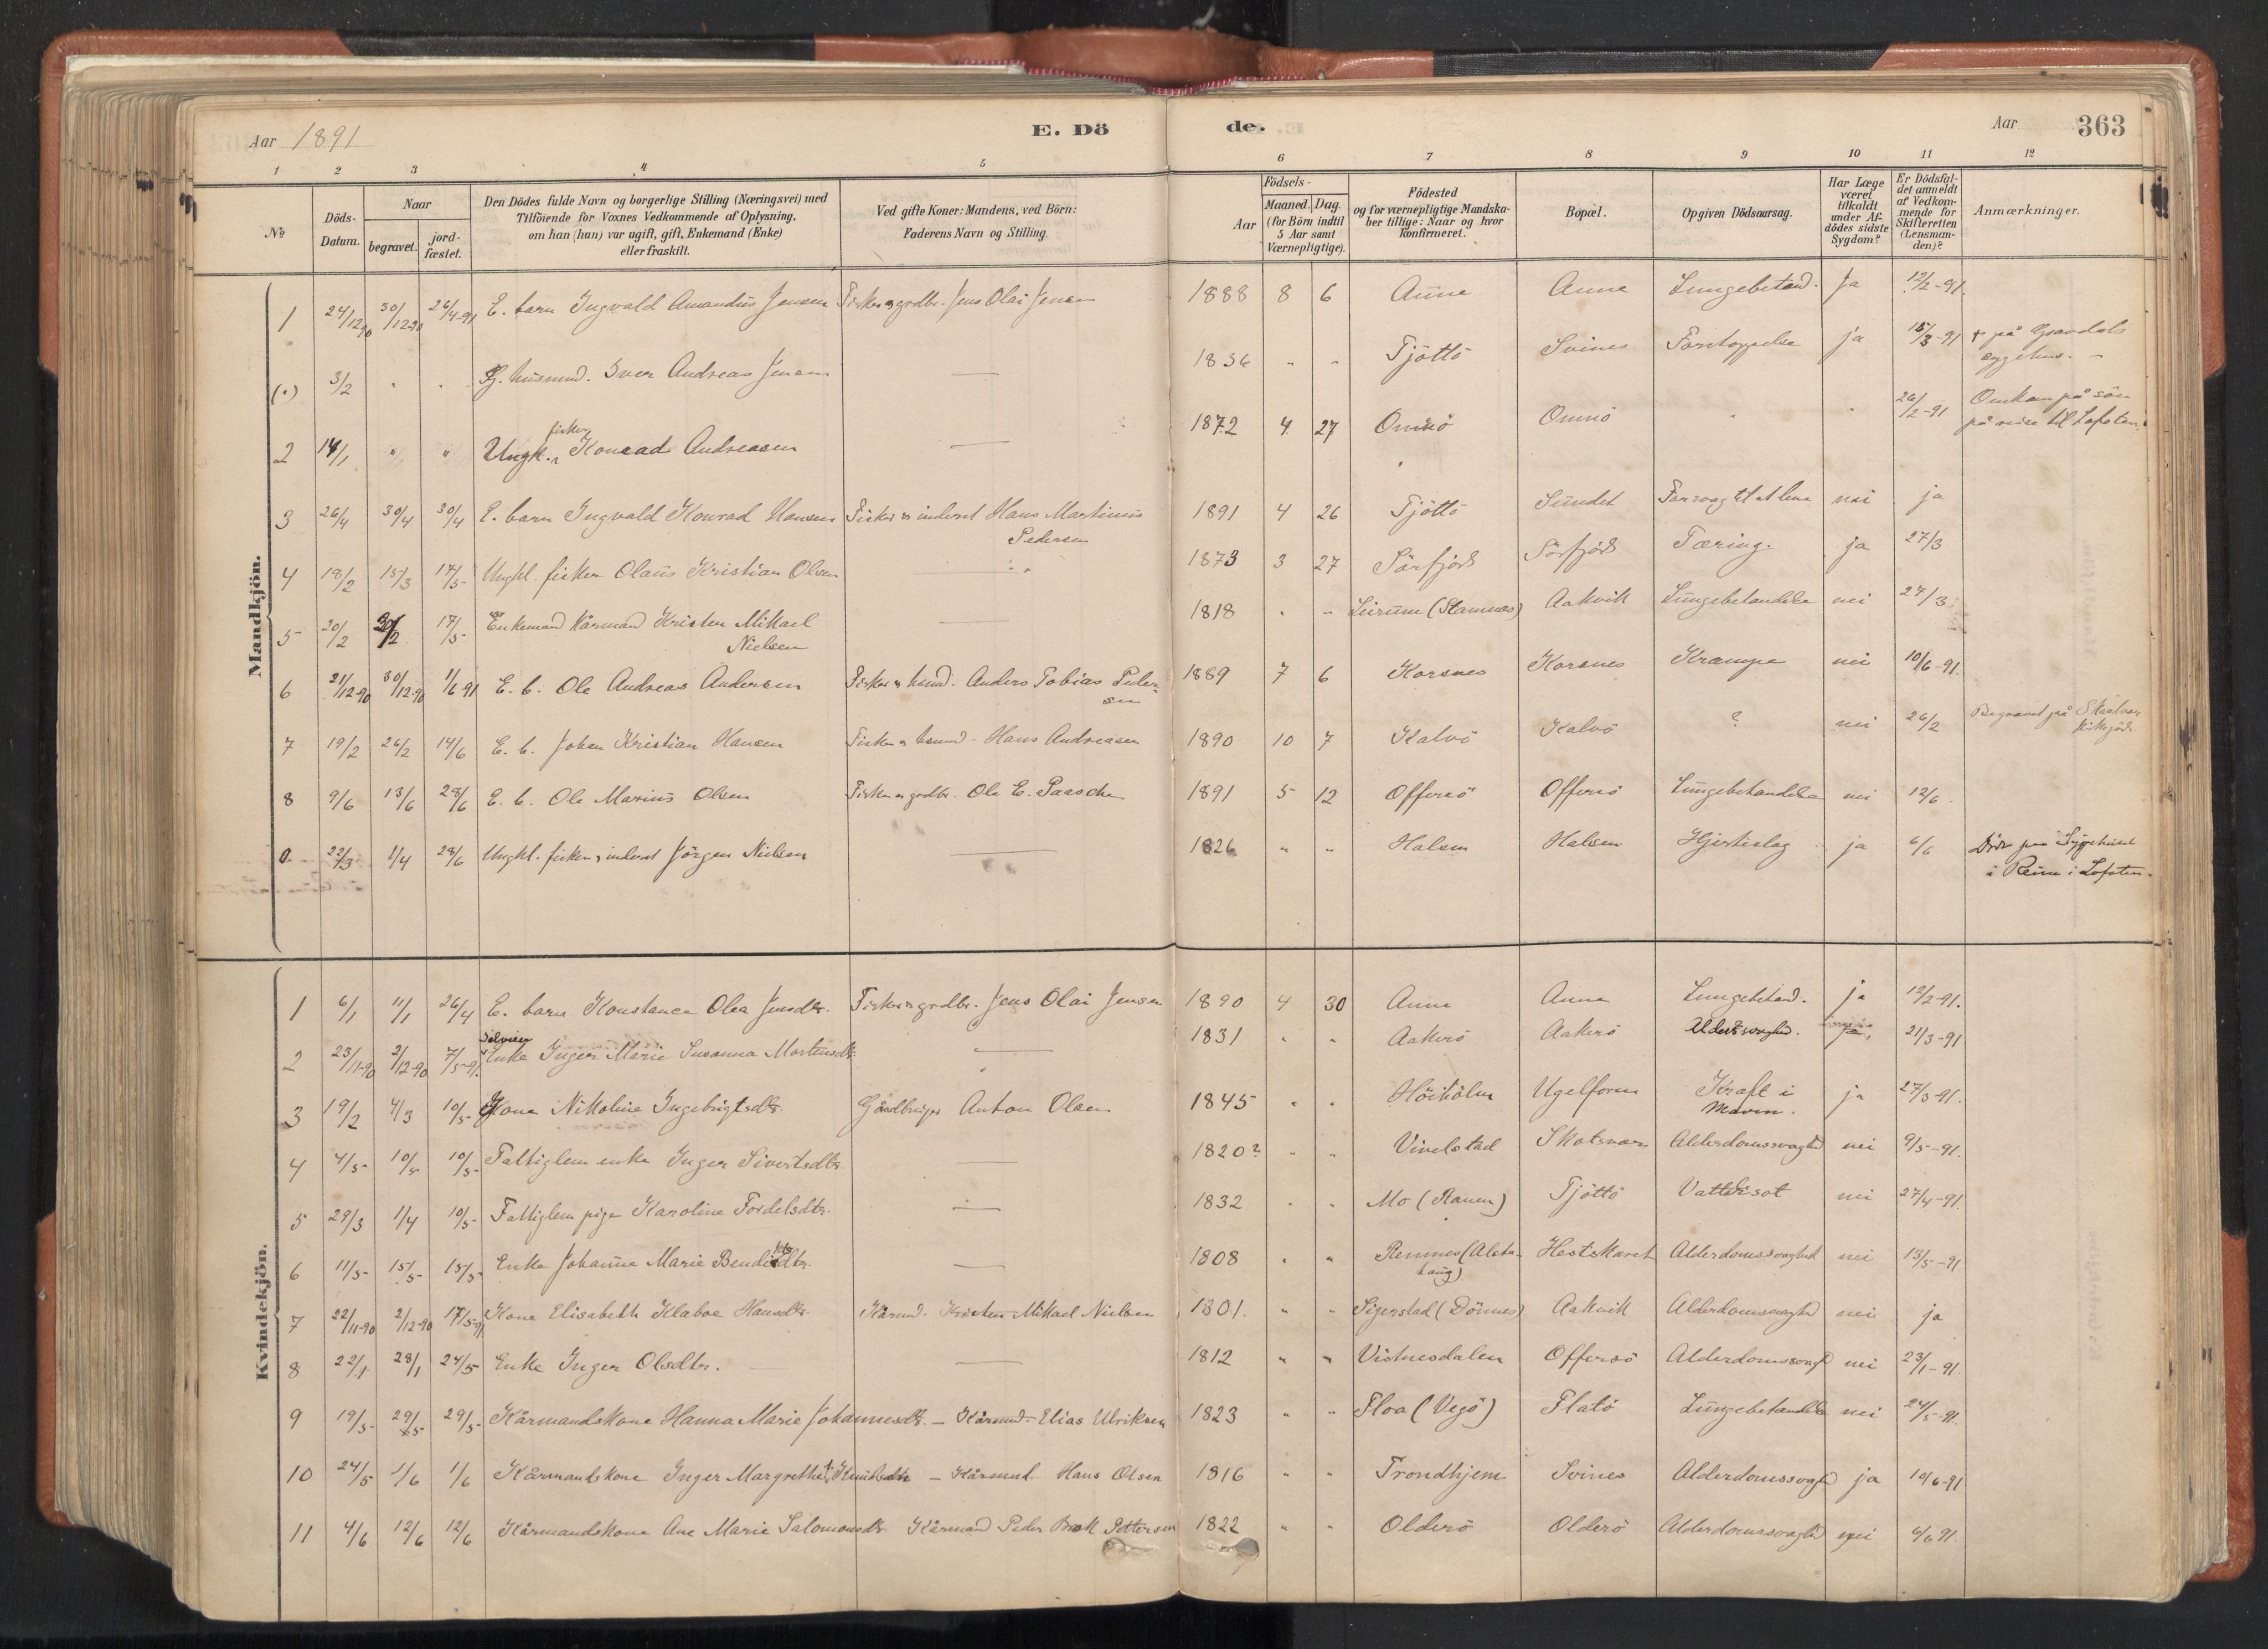 Aar 1891 E. Dö de. Aar 363
1 2 3 4 5 6 7 8 9 10 11 12
№ Döds-Datum. Naar begravet. jordfæstet. Den Dödes fulde Navn og borgerlige Stilling (Næringsvei) med Tilföiende for Voxnes Vedkommende af Oplysning, om han (hun) var ugift, gift, Enkemand (Enke) eller fraskilt. Ved gifte Koner: Mandens, ved Börn: Faderens Navn og Stilling. Födsels- Aar Maaned. Dag. (for Börn indtil 5 Aar samt Værnepligtige). Födested og for værnepligtige Mandskaber tillige: Naar og hvor konfirmeret. Bopæl. Opgiven Dödsaarsag. Har Læge været tilkaldt under Afdödes sidste Sygdom? Er Dödsfaldet anmeldt af Vedkommende for Skifteretten (Lensmanden)? Anmærkninger.
Mandkjön.
1 24/12 90 30/12-90 26/4-91 E. barn Ingvald Amandus Jensen Fisker og grdbr. Jens Olai Jensen 1888 8 6 Anne Anne Lungebetænd. Ja 12/2-91.
(.) 3/2 " " Iver Andreas Jensen — 1836 " " Tjöttö Svines Forstoppelse ja 15/3-91 † på Gravdals sygehus. –
2 14/1 " " Ungk. fisker Konrad Andreasen — 1872 4 27 Omnö Omnö " " 26/2-91 Omkom på söen på reise til Lofoten.
3 26/4 30/4 30/4 E. barn Ingvald Konrad Hansen Fisker og inderst Hans Martinus Pedersen 1891 4 26 Tjöttö Sundet For svag til at leve nei ja
4 18/2 15/3 17/5 Ungkl. fisker Olaus Kristian Olsen — 1873 3 27 Sörfjord Sörfjord Tæring. ja 27/3
5 20/2 17/5 Enkemand kårmand Kristen Mikael Nielsen — 1818 " " Leirum (Stamnes) Aakvik Lungebetændelse nei 27/3
6 21/12-90 30/12-90 1/6 91 E. b. Ole Andreas Andersen Fisker og husmd. Anders Tobias Pedersen 1889 7 6 Korsnes Korsnes Krampe nei 10/6-91.
7 19/2 26/2 14/6 E. b. Johan Kristian Hansen Fisker og husmd. Hans Andreasen 1890 10 7 Kalvö Kalvö ? nei 26/2 Begravet på Skaalvær kirkegård
8 9/6 13/6 28/6 E. b. Ole Marius Olsen Fisker og grdbr. Ole E. Paasche 1891 5 12 Offersö Offersö Lungebetændelse nei 12/6.
22/3 1/4 28/6 Ungkl. fisker og inderst Jörgen Nielsen — 1826 " " Halsen Halsen Hjerteslag ja 6/6 Död paa Sygehuset i Reine i Lofoten.
Kvindekjön.
1 6/1 11/1 26/4 E. barn Konstance Olea Jensdtr. Fisker og grdbr. Jens Olai Jensen 1890 4 30 Anne Anne Lungebetænd. ja 12/2-91.
2 23/11-90 2/12-90 7/5-91. Enke Inger Marie Susanna Mortensdtr. — 1831 " " Aakerö Aakerö Alderssvaghed. 21/3-91
3 19/2 4/3 10/5 Kone Nikoline Ingebrigtsdtr. Gårdbruger Anton Olsen 1845 " " Höiholm Ugelforen Kræft i Maven. ja 27/3-91.
4 4/5 10/5 10/5 Fattiglem enke Inger Sivertsdtr. — 1820? " " Vivelstad Skotsvær Alderdomssvaghed nei 9/5-91.
5 29/3 1/4 10/5 Fattiglem pige Karoline Tordelsdtr. — 1832 " " Mo (Ranen) Tjöttö Vattersot nei 27/4-91.
6 11/5 15/5 15/5 Enke Johanne Marie Bendiksdtr. — 1808 " " Rennes (Alstahaug) Hestskaret Alderdomssvaghed nei 13/5-91
7 22/11-90 2/12-90 17/5-91 Kone Elisabeth Klaboe Hansdtr. Kårmd. Kristen Mikael Nielsen 1801. " " Sigerstad (Dönnes) Aakvik Alderdomssvaghed nei ja
8 22/1 28/1 24/5 Enke Inger Olsdtr. — 1812 " " Vistnesdalen Offersö Alderdomssvagh nei 23/1-91.
9 19/5 29/5 29/5 Kårmandskone Hanna Marie Johannesdtr. – Kårmd. Elias Ulriksen 1823 " " Floa (Vegö) Flatö Lungebetændelse nei 24/5-91.
10 24/5 1/6 1/6 Kårmandskone Inger Margrethe Knudsdtr – Kårmd Hans Olsen 1816 " " Trondhjem Svines Alderdomssvaghd ja 10/6-91
11 4/6 12/6 12/6 Kårmandskone Ane Marie Salomonsdtr Kårmand Peder Brok Pettersen 1822 " " Olderö Olderö Alderdomssvaghed nei 6/6 91.